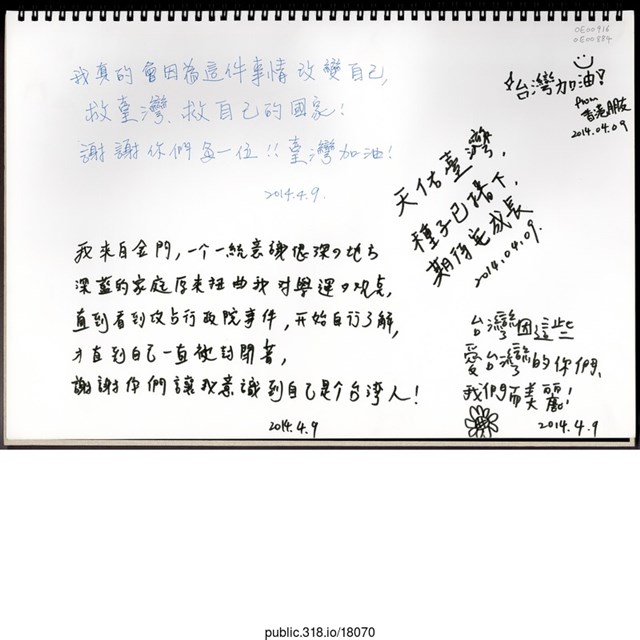 OE00916
OE00884
我真的會因為這件事情改變自己,
救臺灣、救自己的國家!
謝謝你們每一位!!臺灣加油!
2014.4.9.
台灣加油!
from
香港朋友
2014.04.09
天佑臺灣,
種子已播下,
期待它成長
2014.04.09.
我來自金門,一个一統意識很深的地方
深藍的家庭原來扭曲我對學運的觀点,
直到看到攻占行政院事件,开始自行了解,
才直到自己一直被封閉着,
謝謝你們讓我意識到自己是个台湾人!
2014.4.9
台灣因這些
愛台灣的你們、
我們而美麗!
2014.4.9
public.318.io/18070